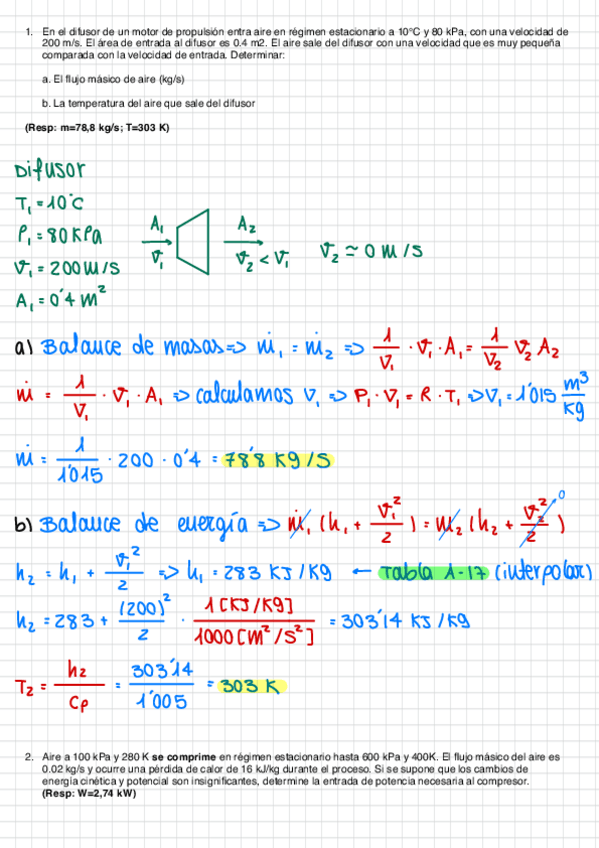 1. En el difusor de un motor de propulsión entra aire en régimen estacionario a 10°C y 80 kPa, con una velocidad de
200 m/s. El área de entrada al difusor es 0.4 m2. El aire sale del difusor con una velocidad que es muy pequeña
comparada con la velocidad de entrada. Determinar:
a. El flujo másico de aire (kg/s)
b. La temperatura del aire que sale del difusor
(Resp: m=78,8 kg/s; T=303 K)
Difusor
T₁ = 10°C
P₁ = 80 KPa
V₁ = 200 m/s
A₁ = 0'4 m²
A₁ V₁ A₂ V₂ < V₁ V₂ ≃ 0 m/s
a) Balance de masas => ṁ₁ = ṁ₂ => 1/V₁ · V₁ · A₁ = 1/V₂ V₂ A₂
ṁ = 1/V₁ · V₁ · A₁ => calculamos V₁ => P₁ · V₁ = R · T₁ => V₁ = 1'015 m³/Kg
ṁ = 1/1'015 · 200 · 0'4 = 78'8 Kg/s
b) Balance de energía => ṁ₁ (h₁ + V₁²/2) = ṁ₂ (h₂ + V₂²/2) 0
h₂ = h₁ + V₁²/2 => h₁ = 283 KJ/Kg ← Tabla A-17 (interpolar)
h₂ = 283 + (200)²/2 · 1 [KJ/Kg]/1000 [m²/s²] = 303'14 KJ/Kg
T₂ = h₂/Cp = 303'14/1'005 = 303 K
2. Aire a 100 kPa y 280 K se comprime en régimen estacionario hasta 600 kPa y 400K. El flujo másico del aire es
0.02 kg/s y ocurre una pérdida de calor de 16 kJ/kg durante el proceso. Si se supone que los cambios de
energía cinética y potencial son insignificantes, determine la entrada de potencia necesaria al compresor.
(Resp: W=2,74 kW)